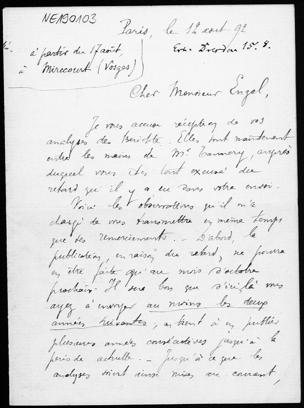 NE190103
Paris, le 12 août 92
à partir du 17 août,
à Mirecourt (Vosges)
Cher Monsieur Engel,
Je vous accuse réception de vos
analyses des Berichte. Elles sont maintenant
entre les mains de Mr Tannery, auprès
duquel vous êtes tout excusé du
retard que il y a eu dans votre envoi.
Voici les observations qu'il m'a
chargé de vous transmettre en même temps
que ses remerciements. — D'abord, la
publication, en raison du retard, ne pourra
en être faite qu'au mois d'octobre
prochain. Il sera bon que d'ici là vous
ayez à envoyer au moins les deux
années suivantes, en tenant à en publier
plusieurs années consécutives jusqu'à la
période actuelle. — Jusqu'à ce que les
analyses soient ainsi mises au courant,